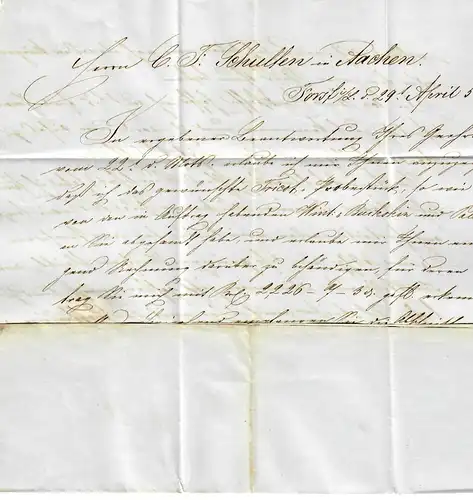 Herrn C. F. Schulten in Aachen.
Forst i/L d. 29t April 5
In ergebener Beantwortung Ihres Geehr
vom 22t d. Mts. erlaube ich mir Ihnen
daß ich das gewünschte Tricot-Probestück, so wie
von den in Auftrag habenden Wint. Buckskin und
an Sie abgesandt habe, und erlaube mir Ihnen
Rechnung darüber zu behändigen, für deren
trag Sie mich mit 2226 - 3
Sie die